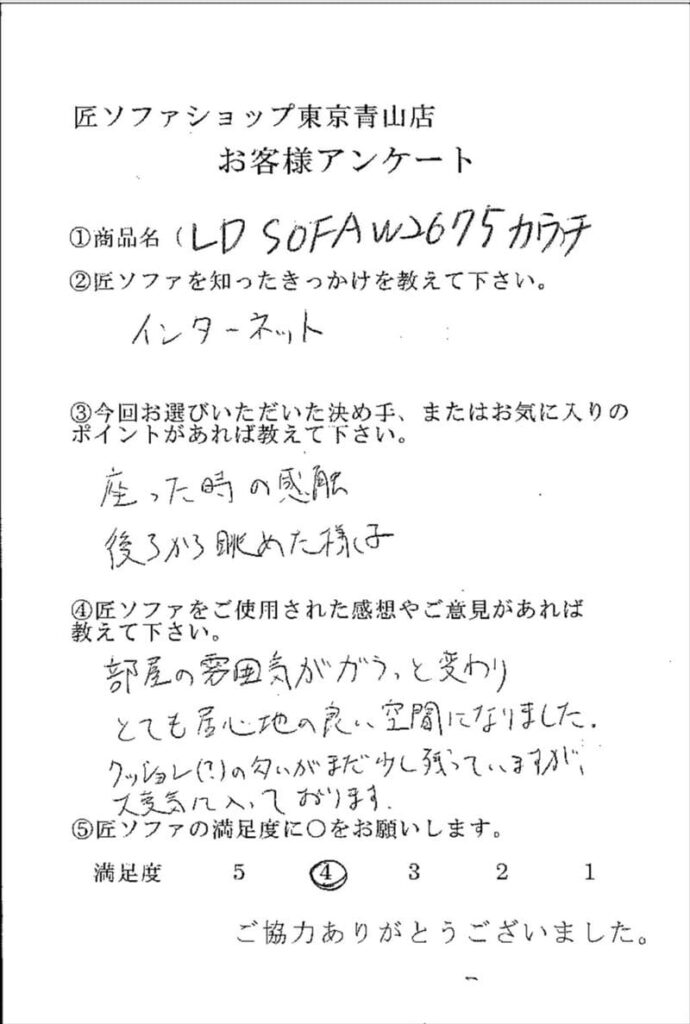 匠ソファショップ東京青山店
お客様アンケート
①商品名（LD SOFA W2675カウチ
②匠ソファを知ったきっかけを教えて下さい。
インターネット
③今回お選びいただいた決め手、またはお気に入りの
ポイントがあれば教えて下さい。
座った時の感触
後ろから眺めた様子
④匠ソファをご使用された感想やご意見があれば
教えて下さい。
部屋の雰囲気がガラっと変わり
とても居心地の良い空間になりました.
クッション(?)の匂いがまだ少し残っていますが、
大変気に入っております.
⑤匠ソファの満足度に○をお願いします。
満足度 5 4 3 2 1
ご協力ありがとうございました。